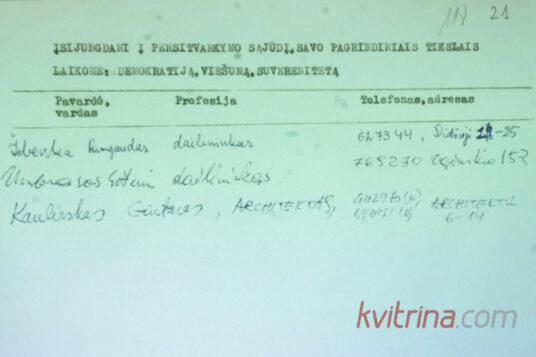 21
ĮSIJUNGDAMI Į PERSITVARKYMO SĄJŪDĮ, SAVO PAGRINDINIAIS TIKSLAIS
LAIKOME: DEMOKRATIJĄ, VIEŠUMĄ, SUVERENITETĄ
Pavardė, vardas Profesija Telefonas, adresas
Rimgaudas dailininkas 627344, Didžioji -25
dailininkas 769270 Oginskio 152
Kaulinskas Gintaras, ARCHITEKTAS, ARCHITEKTŲ
6-14
kvitrina.com